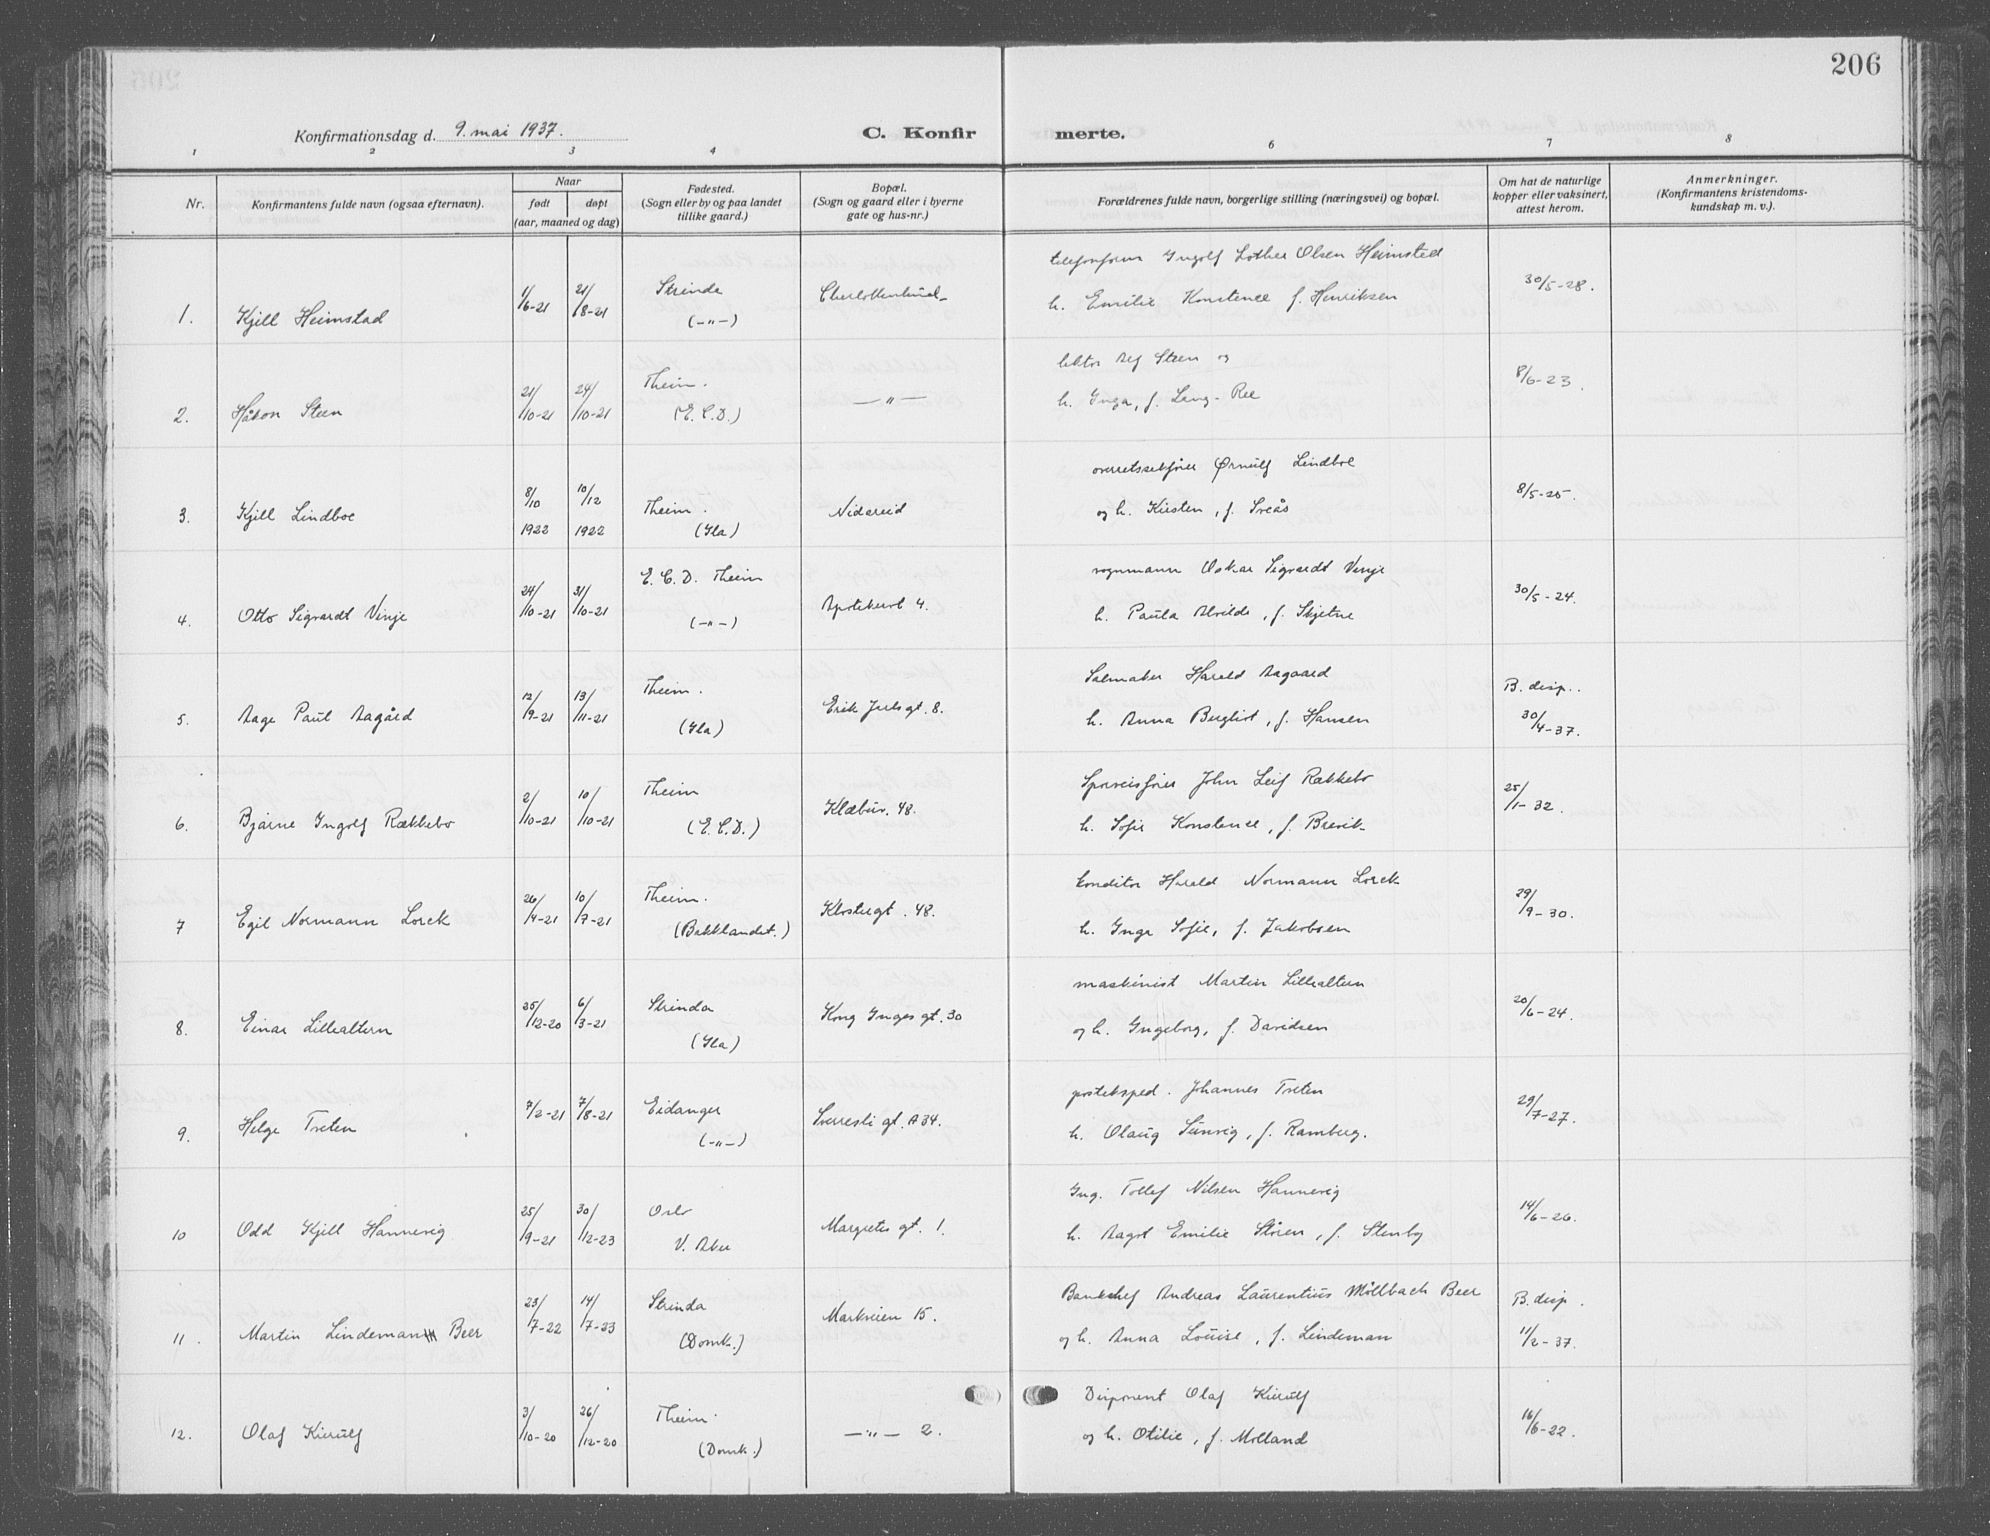 206
Konfirmationsdag d. 9. mai 1937.
C. Konfirmerte.
1 2 3 4 6 7 8
Nr.
Konfirmantens fulde navn (ogsaa efternavn).
Naar
født døpt
(aar, maaned og dag)
Fødested.
(Sogn eller by og paa landet
tillike gaard.)
Bopæl.
(Sogn og gaard eller i byerne
gate og hus-nr.)
Forældrenes fulde navn, borgerlige stilling (næringsvei) og bopæl.
Om hat de naturlige
kopper eller vaksinert,
attest herom.
Anmerkninger.
(Konfirmantens kristendoms-
kundskap m. v.).
1. Kjell Heimstad 1/6-21 21/8-21 Strinda (-"-) Charlottenlund
telefonform Ingolf Lothea Olsen Heimstad
h. Emilie Konstance f. Henriksen
30/5-28.
2. Håkon Steen 21/10-21 24/10-21 Theim. (E.C.D.) —"—
lektor Alf Steen og
h. Inga, f. Lang-Ree
8/6-23.
3. Kjell Lindboe 8/10 1922 10/12 1922 Theim. (Ila) Nidareid
overretssakfører Ørnulf Lindboe
og h. Kirsten, f. Sreås
8/5-25.
4. Otto Sigvardt Vinje 24/10-21 31/10-21 E.C.D. Theim (-"-) Apotekerv 4.
vognmann Oskar Sigvardt Vinje
h. Paula Alvilde, f. Skjetne
30/5-24.
5. Aage Paul Aagård 12/9-21 13/11-21 Theim. (Ila) Erik Jarls gt. 8.
Salmaker Harald Aagaard
h. Anna Bergliot, f. Hansen
B. disp..
30/4-37.
6. Bjarne Ingolf Rækkebo 2/10-21 10/10-21 Theim (E.C.D.) Klæbuv. 48.
Sporveisfører John Leif Rækkebo
h. Sofie Konstance, f. Brevik
25/1-32
7 Egil Normann Lorck 26/4-21 10/7-21 Theim. (Bakklandet.) Klostergt. 48.
konditor Harald Normann Lorck
h. Inga Sofie, f. Jakobsen
29/9-30.
8. Einar Lilleeltern 25/12-20 6/3-21 Strinda (Ila) Kong Inges gt. 30
maskinist Martin Lilleeltern
og h. Ingeborg, f. Davidsen
20/6-24.
9. Helge Treten 7/2-21 7/8-21 Eidanger (-"-) Sverresli gt. A 34.
posteksped. Johannes Treten
h. Olaug Sunvig, f. Ramberg.
29/7-27.
10 Odd Kjell Hannevig 25/9-21 30/12-23 Oslo V. Aker Margretes gt. 1.
Ing. Tollef Nilsen Hannevig
h. Aagot Emilie Støren, f. Stenby
14/6-26.
11. Martin Lindeman Beer 23/7-22 14/7-23 Strinda (Domk.) Markveien 15.
Bankchef Andreas Laurentius Möllbach Beer
og h. Anna Louise, f. Lindeman
B. disp.
11/2-37.
12. Olaf Kierulf 3/10-20 26/12-20 Theim. (Domk.) —"— 2.
Disponent Olaf Kierulf
og h. Otilie, f. Molland
16/6-22.